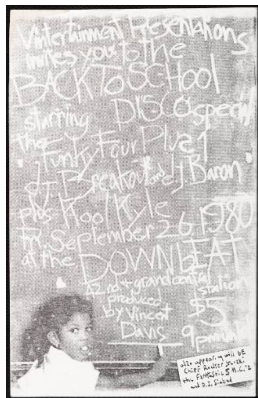 Vintertainment Presentations
invites you to the
BACK TO SCHOOL
DISCO special
starring
the
"Funky Four Plus 1
DJ Breakout and DJ Baron"
plus Kool Kyle
fri. September 26, 1980
at the DOWNBEAT
42nd + grand central
station
produced
by Vincent
Davis
$5
9pm
also appearing will be
Chief Rocker
the Fantastic
and D.J.